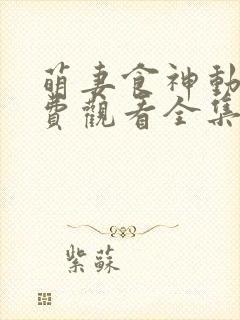 萌妻食神動
費觀看全集
紫蘇